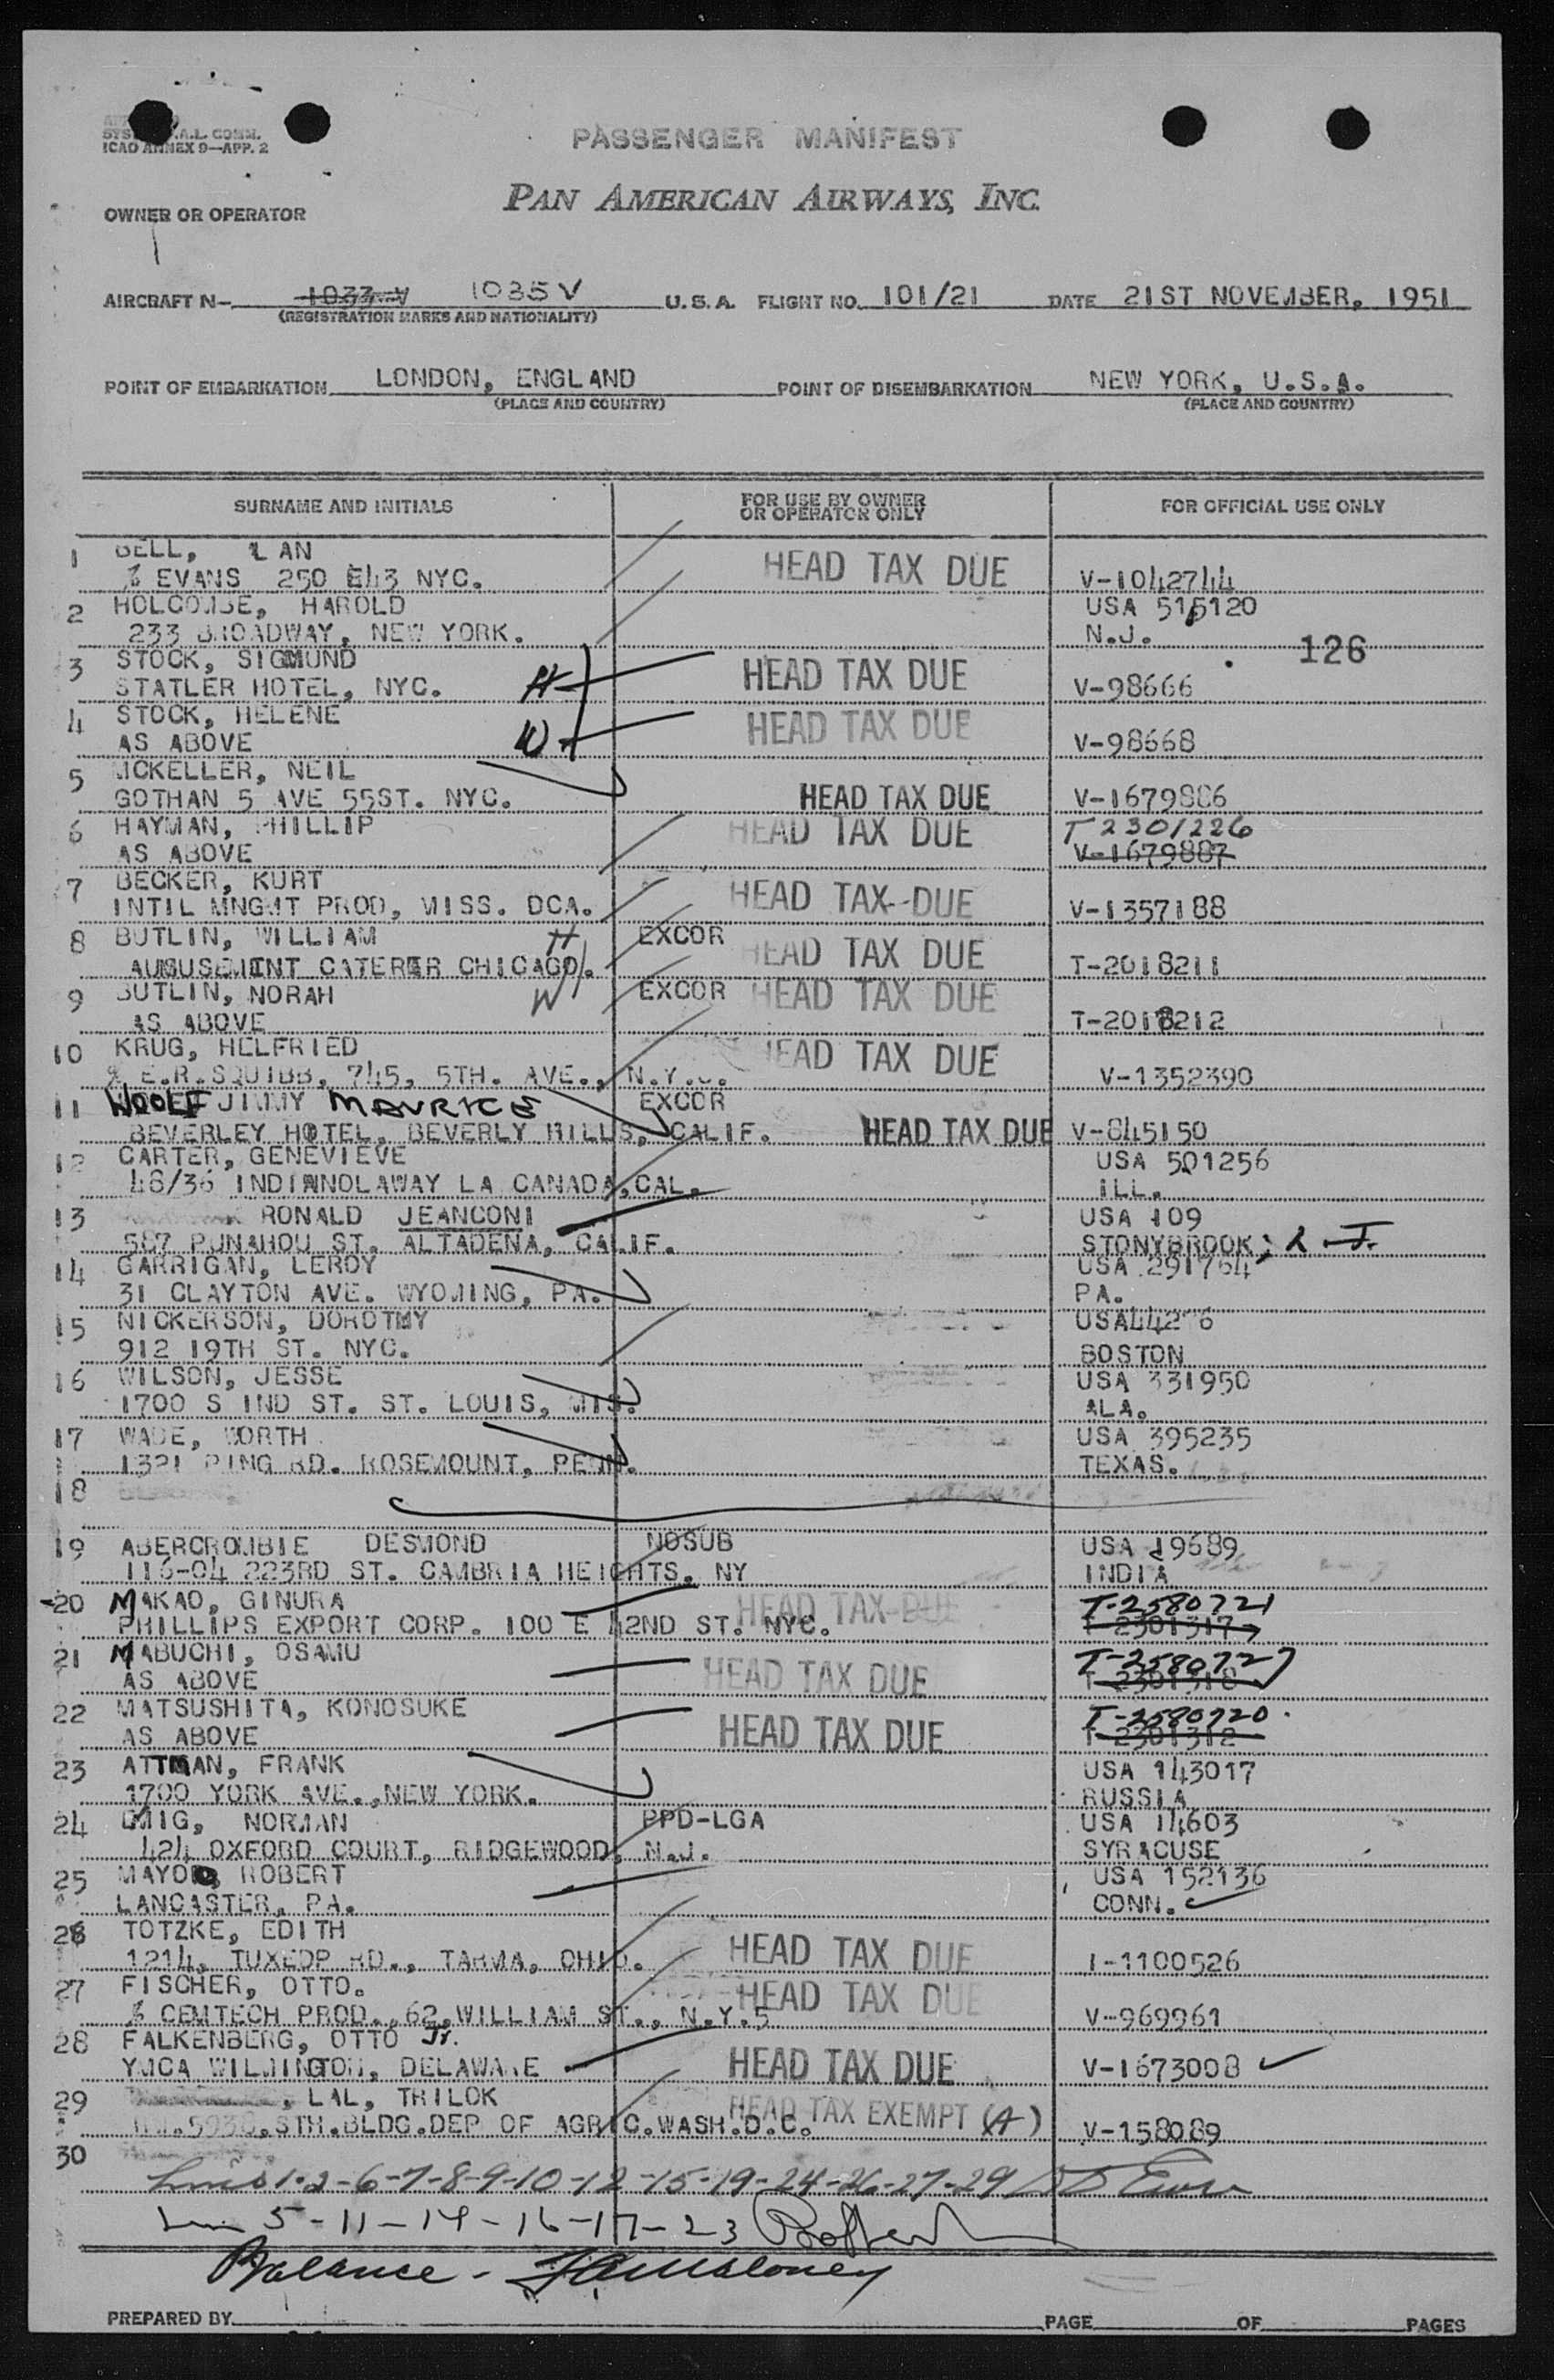 ICAO ANNEX 9—APP. 2
PASSENGER MANIFEST
PAN AMERICAN AIRWAYS, INC.
OWNER OR OPERATOR
AIRCRAFT N- 1033 V 1035 V U. S. A. FLIGHT NO. 101/21 DATE 21ST NOVEMBER, 1951
(REGISTRATION MARKS AND NATIONALITY)
POINT OF EMBARKATION LONDON, ENGLAND POINT OF DISEMBARKATION NEW YORK, U.S.A.
(PLACE AND COUNTRY) (PLACE AND COUNTRY)
SURNAME AND INITIALS FOR USE BY OWNER OR OPERATOR ONLY FOR OFFICIAL USE ONLY
1 BELL, HEAD TAX DUE
% EVANS 250 E43 NYC. V-1042744
2 HOLCOMBE, HAROLD USA 515120
233 BROADWAY, NEW YORK. N.J. 126
3 STOCK, SIGMUND HEAD TAX DUE
STATLER HOTEL, NYC. H V-98666
4 STOCK, HELENE HEAD TAX DUE
AS ABOVE W V-98668
5 MCKELLER, NEIL
GOTHAN 5 AVE 55ST. NYC. HEAD TAX DUE V-1679886
6 HAYMAN, PHILLIP HEAD TAX DUE T 2301226
AS ABOVE V-1679887
7 BECKER, KURT HEAD TAX DUE
INTIL MNGMT PROD, MISS. DCA. V-1357188
8 BUTLIN, WILLIAM H EXCOR HEAD TAX DUE
AUMUSEMENT CATERER CHICAGO. T-2018211
9 BUTLIN, NORAH W EXCOR HEAD TAX DUE
AS ABOVE T-2018212
10 KRUG, HELFRIED HEAD TAX DUE
% E.R.SQUIBB, 745, 5TH. AVE., N.Y.C. V-1352390
11 WOOLF JIMMY MAURICE EXCOR
BEVERLEY HOTEL, BEVERLY HILLS, CALIF. HEAD TAX DUE V-845150
12 CARTER, GENEVIEVE USA 501256
48/36 INDIANNOLAWAY LA CANADA, CAL. ILL.
13 RONALD JEANCONI USA 109
587 PUNAHOU ST. ALTADENA, CALIF. STONYBROOK
14 GARRIGAN, LEROY USA 291764
31 CLAYTON AVE. WYOMING, PA. PA.
15 NICKERSON, DOROTHY
912 19TH ST. NYC. BOSTON
16 WILSON, JESSE USA 331950
1700 S IND ST. ST. LOUIS, MIS. ALA.
17 WADE, WORTH USA 395235
1321 RD. ROSEMOUNT, PENN. TEXAS.
18
19 ABERCROMBIE DESMOND NOSUB USA 19689
116-04 223RD ST. CAMBRIA HEIGHTS, NY INDIA
20 MAKAO, GINURA HEAD TAX DUE T-2580721
PHILLIPS EXPORT CORP. 100 E 42ND ST. NYC. T-2301317
21 MABUCHI, OSAMU HEAD TAX DUE T-2580727
AS ABOVE T-2301318
22 MATSUSHITA, KONOSUKE HEAD TAX DUE T-2580720
AS ABOVE T-2301312
23 ATTMAN, FRANK USA 143017
1700 YORK AVE., NEW YORK. RUSSIA
24 NORMAN PPD-LGA USA 14603
424 OXFORD COURT, RIDGEWOOD, N.J. SYRACUSE
25 ROBERT USA 152136
LANCASTER, PA. CONN.
26 TOTZKE, EDITH HEAD TAX DUE
1214, TUXEDP RD., TARMA, OHIO. I-1100526
27 FISCHER, OTTO. HEAD TAX DUE
% CEMTECH PROD., 62, WILLIAM ST., N.Y.5 V-969961
28 FALKENBERG, OTTO Jr.
YMCA WILMINGTON, DELAWARE HEAD TAX DUE V-1673008
29 , LAL, TRILOK HEAD TAX EXEMPT (A)
STH.BLDG.DEP OF AGRIC.WASH.D.C. V-158089
30
Lines 1-2-6-7-8-9-10-12-15-19-24-26-27-29
5-11-14-16-17-23
Balance -
PREPARED BY PAGE OF PAGES